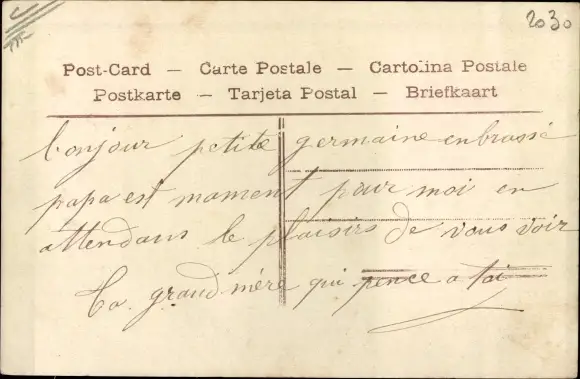 2030
Post-Card — Carte Postale — Cartolina Postale
Postkarte — Tarjeta Postal — Briefkaart
bonjour petite germaine enbrassé
papa est maman pour moi en
attendans le plaisirs de vous voir
Ta grand mère qui pence a toi